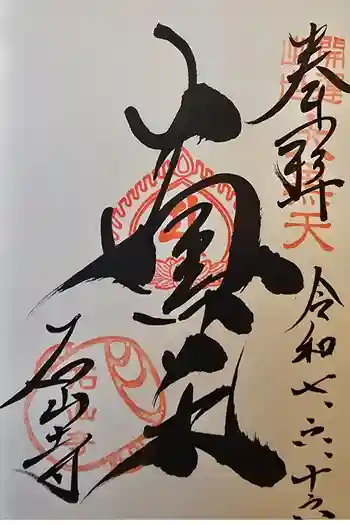 奉拝
開運
天
令和七、六、十六
大黒天
石山寺